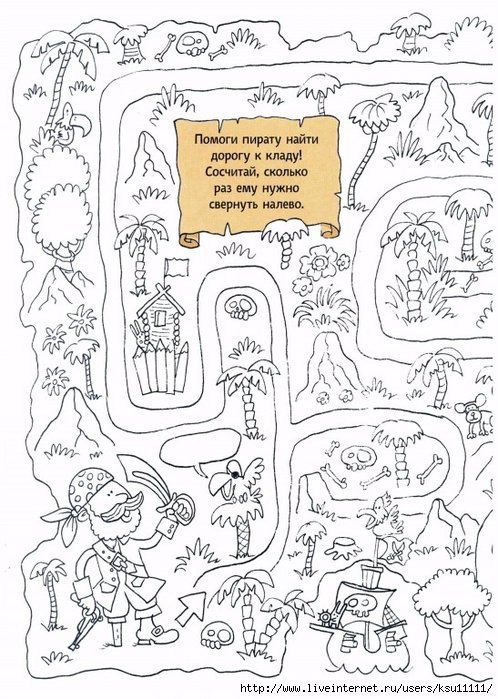 Помоги пирату найти
дорогу к кладу!
Сосчитай, сколько
раз ему нужно
свернуть налево.
http://www.liveinternet.ru/users/ksu11111/